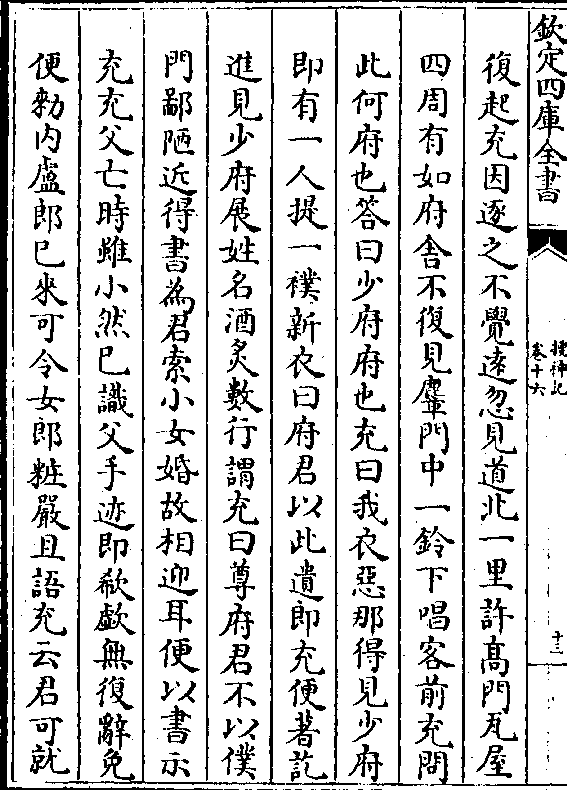 欽定四庫全書
搜神記
卷十六
十三
復起充因逐之不覺遠忽見道北一里許髙門瓦屋
四周有如府舎不復見麞門中一鈴下唱客前充問
此何府也答曰少府府也充曰我衣惡那得見少府
即有一人提一襆新衣曰府君以此遺郎充便著訖
進見少府展姓名酒炙數行謂充曰尊府君不以僕
門鄙陋近得書為君索小女婚故相迎耳便以書示
充充父亡時雖小然已識父手迹即欷歔無復辭免
便勅内盧郎已來可令女郎粧嚴且語充云君可就